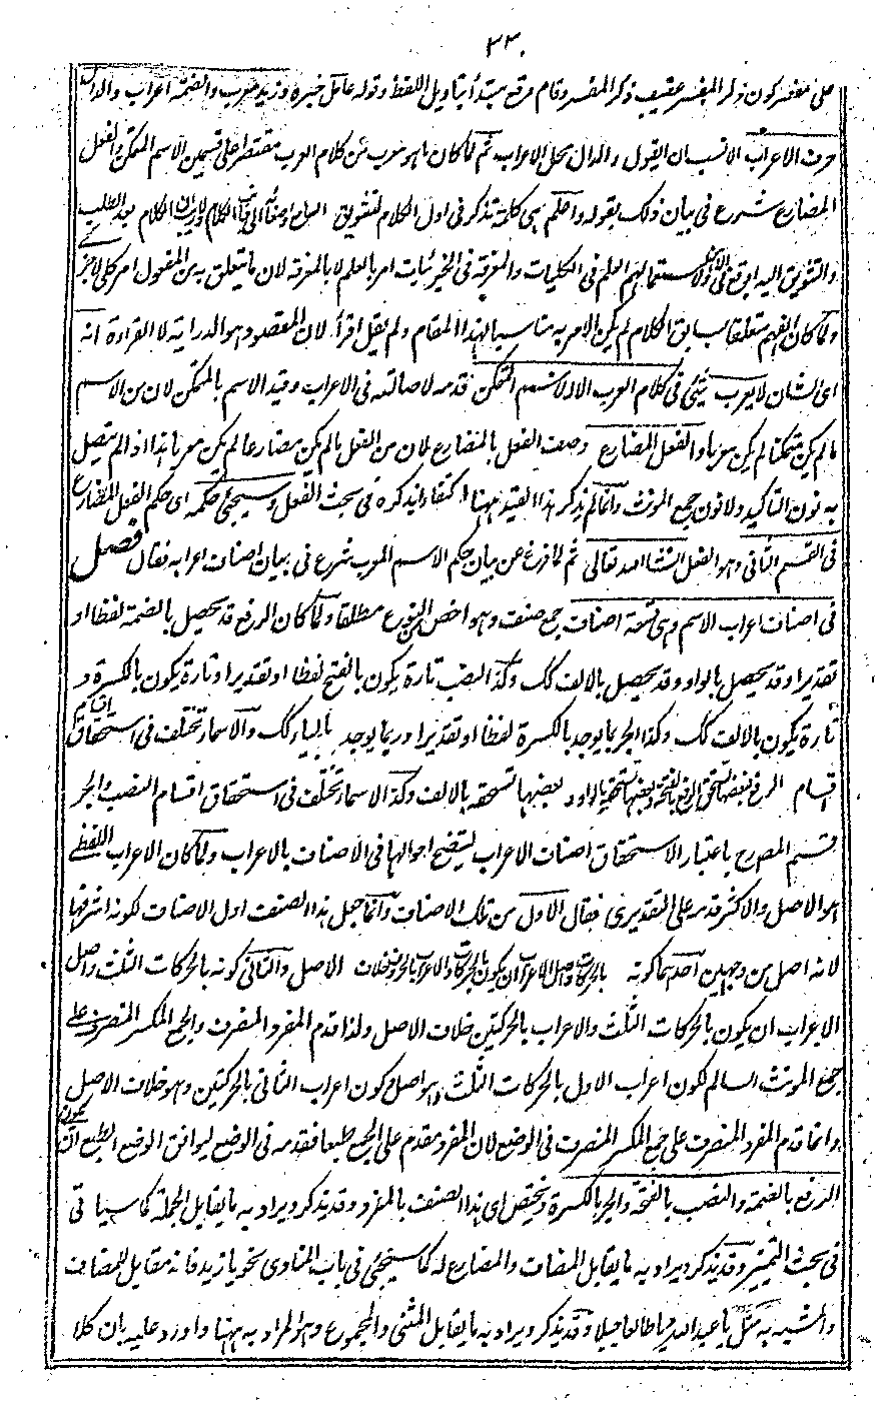 ٣٣٠
على مفسر كون ذكر المفسر عقيب ذكر المفسر وقام مرفع مبتدأ بتاويل اللفظ وقوله عامل خبره وزيد معرب والضمة اعراب والدال
حرف الاعراب الانسب ان يقول والدال محل الاعراب ثم لما كان ما هو معرب من كلام العرب مقتصرا على قسمين الاسم المتمكن والفعل
المضارع شرع فى بيان ذلك بقوله واعلم هى كلمة تذكر فى اول الكلام لتشويق السامع واصغائه الى الكلام لان الكلام بعد الطلب
والتشويق اليه اوقع فى الاستعمالهم العلم فى الكليات والمعرفة فى الجزئيات امر بالعلم لا بالمعرفة لان ما يتعلق به من المفعول امر كلى لا جز
ولما كان الفهم متعلقا بسابق الكلام لم يكن الامر به مناسبا لهذا المقام ولم يقل اقرأ لان المقصود هو الدراية لا القراءة انه
اى الشان لا يعرب شئ فى كلام العرب الا الاسم المتمكن قدمه لاصالته فى الاعراب وقيد الاسم بالمتمكن لان من الاسم
ما لم يكن متمكنا لم يكن معربا والفعل المضارع وصف الفعل بالمضارع لان من الفعل ما لم يكن مضارعا لم يكن معربا هذا اذا لم يتصل
به نون التاكيد ولا نون جمع المونث وانما لم يذكر هذا القيد ههنا اكتفاء بذكره فى بحث الفعل وسيجئ حكمه اى حكم الفعل المضارع
فى القسم الثانى وهو الفعل انشاء الله تعالى ثم لما فرغ عن بيان حكم الاسم المعرب شرع فى بيان اصناف اعرابه فقال فصل
فى اصناف اعراب الاسم وهى تسعة اصناف جمع صنف وهو اخص من النوع مطلقا ولما كان الرفع قد يحصل بالضمة لفظا او
تقديرا وقد يحصل بالواو وقد يحصل بالالف كك وكذا النصب تارة يكون بالفتح لفظا او تقديرا وتارة يكون بالكسرة و
تارة يكون بالالف كك وكذا الجر بما يوجد بالكسرة لفظا او تقديرا وربما يوجد بالياء كك والاسماء تختلف فى استحقاق اقسام
اقسام الرفع فبعضها تستحق الرفع بالضمة وبعضها تستحقه بالواو وبعضها تستحقه بالالف وكذا الاسماء تختلف فى استحقاق اقسام النصب والجر
قسم المصرح باعتبار الاستحقاق اصناف الاعراب ليتضح احوالها فى الاصناف بالاعراب ولما كان الاعراب اللفظى
هو الاصل والاكثر قدم على التقديرى فقال الاول من تلك الاصناف وانما جعل هذا الصنف اول الاصناف لكونه اشرفها
لانه اصل من وجهين احدهما كونه بالحركات واصل الاعراب ان يكون بالحركات والاعراب بالحروف خلاف الاصل والثانى كونه بالحركات الثلث واصل
الاعراب ان يكون بالحركات الثلث والاعراب بالحركتين خلاف الاصل ولذا قدم المفرد المنصرف والجمع المكسر المنصرف على
جمع المونث السالم لكون اعراب الاول بالحركات الثلث وهو اصل وكون اعراب الثانى بالحركتين وهو خلاف الاصل
وانما قدم المفرد المنصرف على جمع المكسر المنصرف فى الوضع لان المفرد مقدم على الجمع طبعا فقدمه فى الوضع ليوافق الوضع الطبع ان يكون
الرفع بالضمة والنصب بالفتحة والجر بالكسرة ويختص اى هذا الصنف بالمفرد وقد يذكر ويراد به ما يقابل الجملة كما سياتى
فى بحث التميز وقد يذكر ويراد به ما يقابل المضاف والمضارع له كما سيجئ فى باب المنادى نحو يا زيد فانه مقابل للمضاف
والمشبه به مثل يا عبد الله ويا طالعا جبلا وقد يذكر ويراد به ما يقابل المثنى والمجموع وهو المراد به ههنا واورد عليه بان كلا